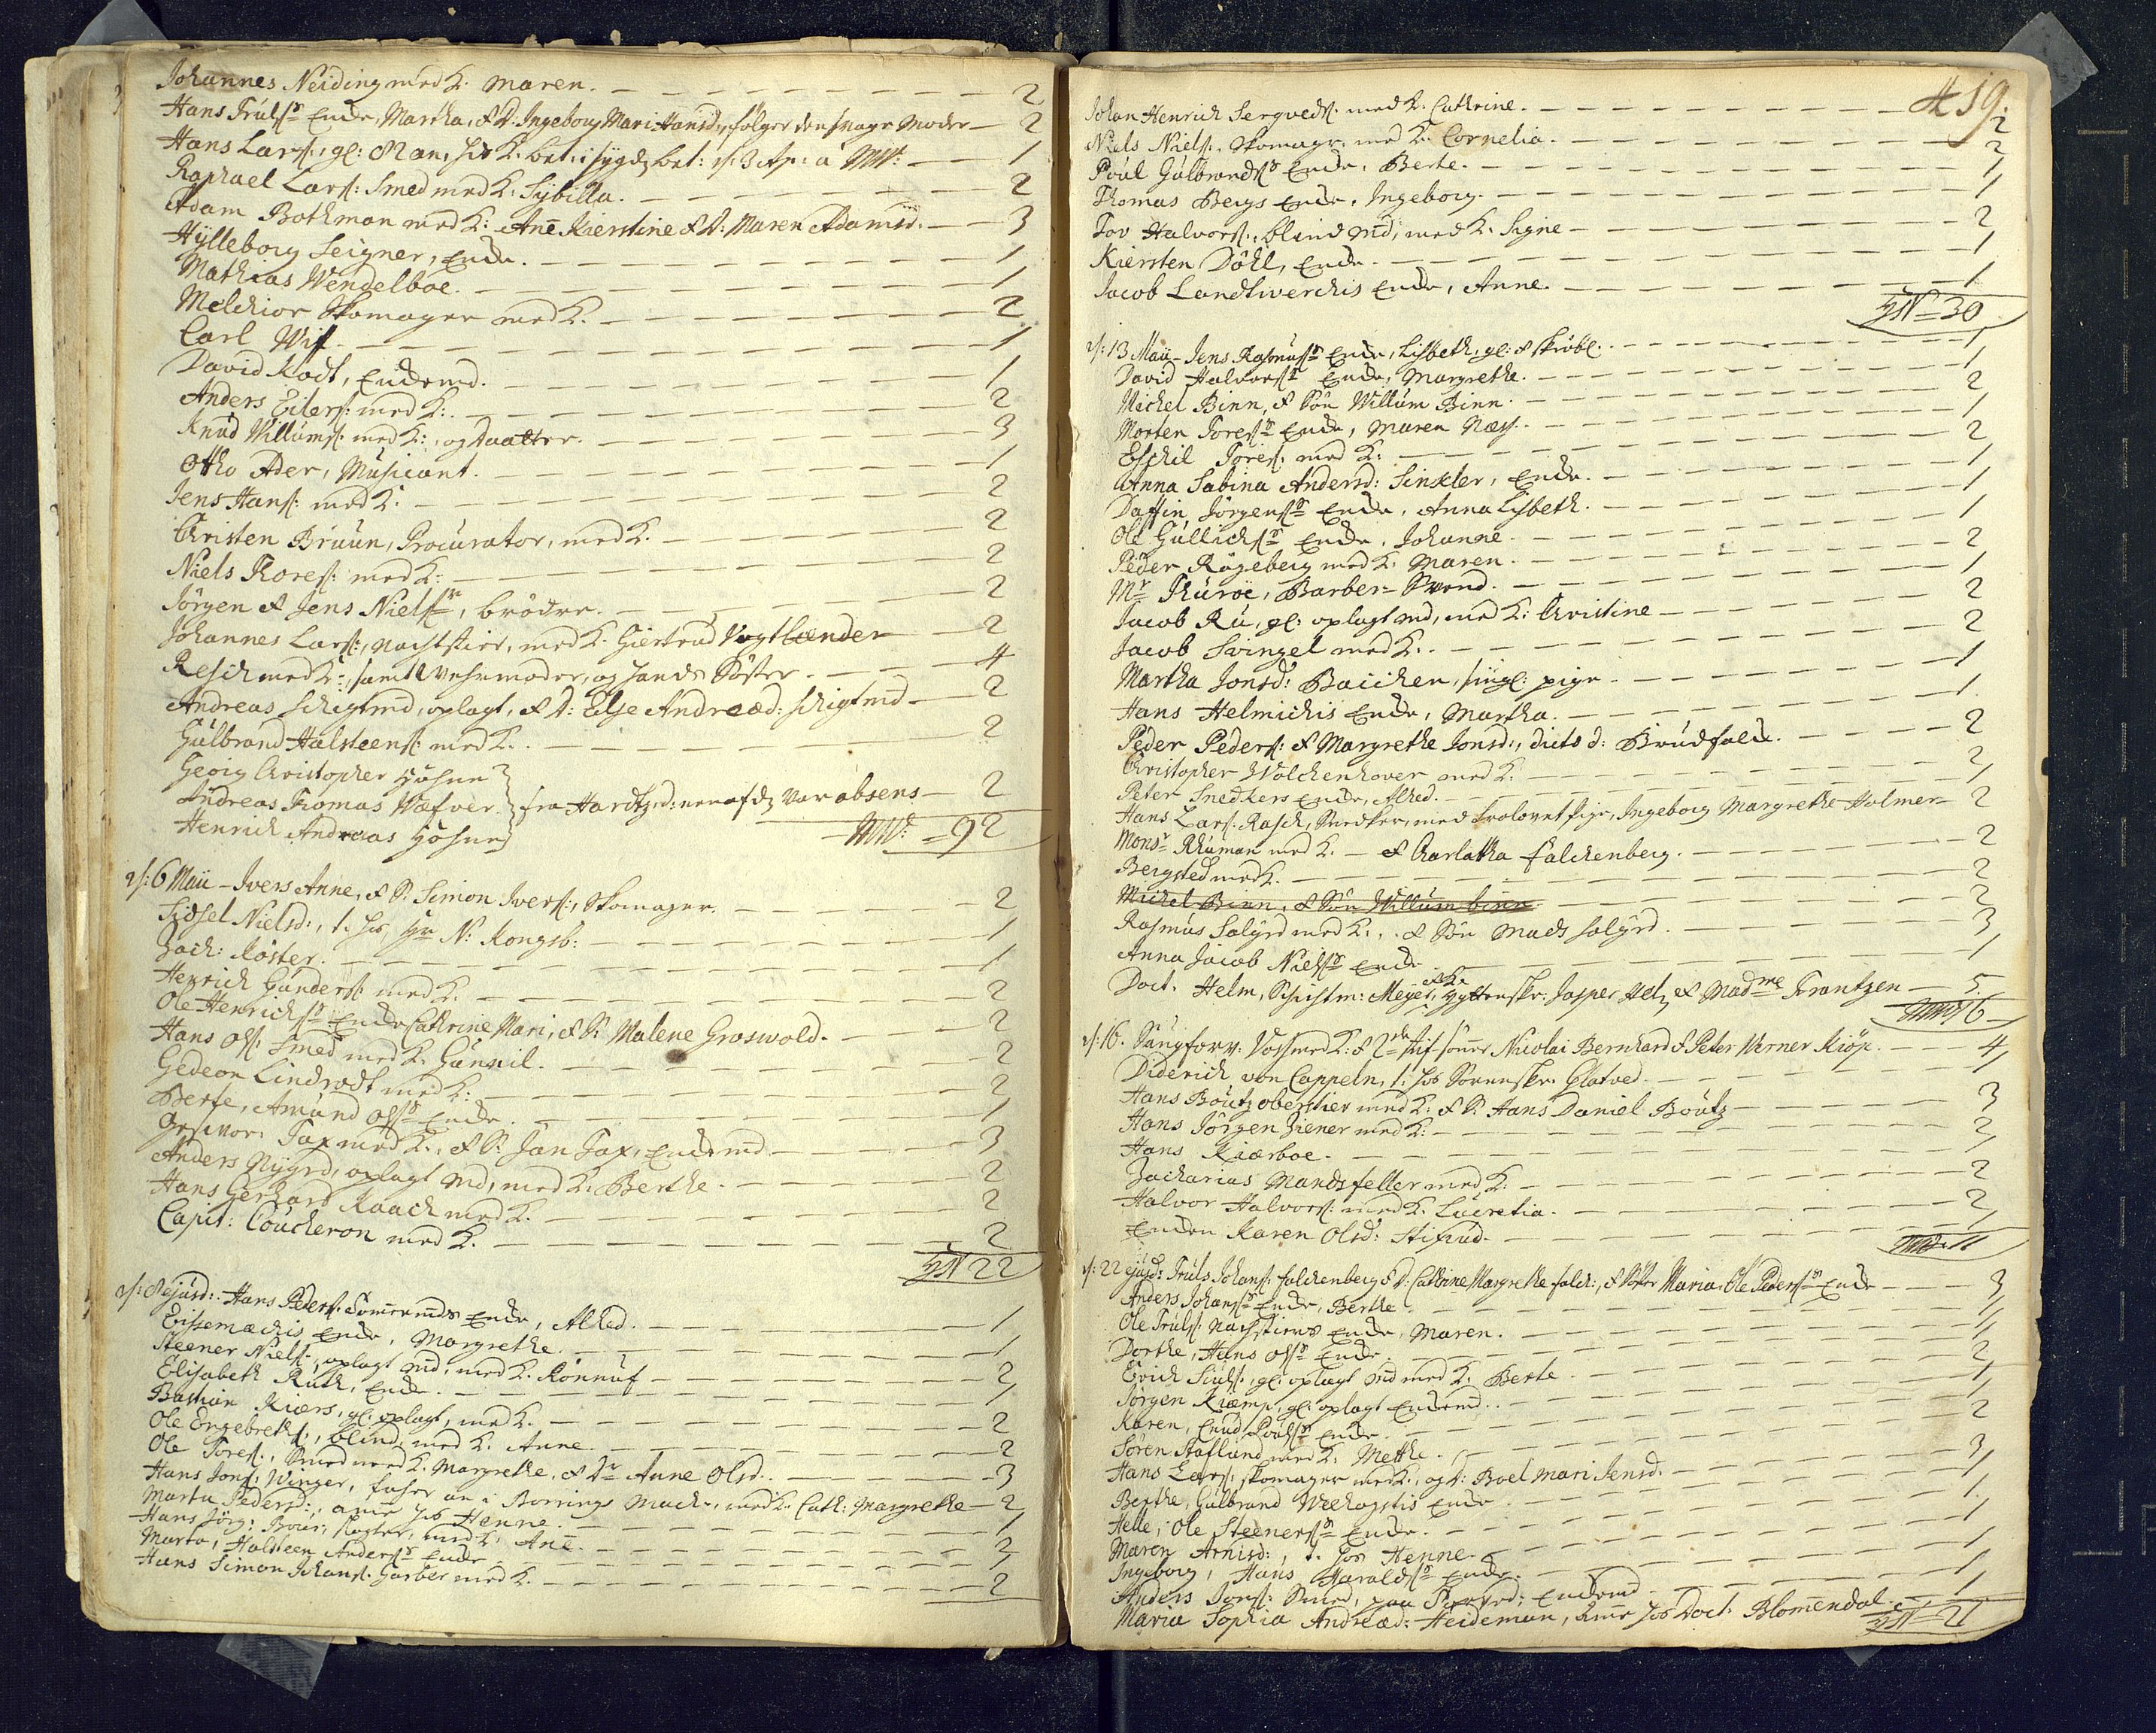 Johannes Neiding med K. Maren. 2
Hans Truls:ns Enke, Martha, & D. Ingeborg Mari Hansd:, følger den svage Moder 2
Hans Lars:, gl: Man, hos K. bet: i 1
Raphael Lars: Smed med K: Sybilla. 2
Adam Bothman med K: Ane Kierstine & D: Maren Adamsd. 3
Hylleborg Seigner, Enke. 1
Mathias Wendelboe. 1
Melchior Skomager med K. 2
Carl Wif. 1
David Kodt, Enkemd. 1
Anders Eilers: med K: 2
Knud Willums: med K:, og Daatter. 3
Otho Ader, Musicant. 1
Jens Hans: med K. 2
Christen Bruun, Procurator, med K. 2
Niels Thores: med K: 2
Jørgen & Jens Niels:, brødre. 2
Johannes Lars:, nachstier, med K. Giertrud Vogtlænder 2
Resch med K:, samt Vermoder, og hands Søster. 4
Andreas Schigtmd, oplagt, & D: Else Andreæd: schigtmd 2
Gulbrand Halsteens: med K. 2
Georg Christopher Høhne
Andreas Thomas Wæfver. fra Hardtz, d: ene af dz var absens 2
Henrich Andreas Høhne
92
d: 6 Maii - Ivers Anne, & S. Simon Ivers:, Skomager. 2
Sidsel Nielsd:, t. hos Hr N: Kongsb: 1
Zach: Köster. 1
Henrich Gunders: med K. 2
Ole Henrichs:ns Enke Cathrine Mari, & D: Malene Groswold. 2
Hans Ols: Smed med K. Gunnil. 2
Gedeon Lindrodt med K: 2
Berte, Amund Ols:ns Enke. 1
Tax med K., & S: Jan Tax, Enkemd 3
Anders Nygrd, oplagt md, med K. Berthe. 2
Hans Gerhard Kaach med K. 2
Capit: Coucheron med K. 2
22
d: 8 ejusd: Hans Peders. Tømermds Enke, Alhed. 1
Enke, Margrethe. 1
Steener Niels:, oplagt md, med K. Rønnuf 2
Elisabeth Ruth, Enke. 1
Bastian Kiærs, gl: oplagt, med K. 2
Ole Engebreths:, blind, med K. Anne. 2
Ole Tores:, Smed med K. Margrethe, & Dr Anne Olsd. 3
Hans Jons: Winger, i Borrings med K. Cath: Margrethe 2
Marta Pedersd:, ame hos Henne. 1
Hans Jörg: Kogter, med K. Ane. 2
Marta, Halsteen Anders:ns Enke 1
Hans Simon Johans. Garber med K. 2
419.
Johan Henrich Sergveds. med K. Cathrine. 2
Niels Niels:, Skomager, med K. Cornelia. 2
Poul Gulbrands:ns Enke, Berte. 1
Thomas Bergs Enke, Ingeborg. 1
Tov Halvors:, blind md, med K. Signe 2
Kiersten Döhl, Enke. 1
Jacob Landtwerchis Enke, Anne. 1
30
d: 13 Maii - Jens Rasmus:ns Enke, Lisbeth, gl: & skrøbl. 1
David Halvors:ns Enke, Margrethe. 1
Michel Binn, & Søn Willum Binn. 2
Morten Tores:ns Enke, Maren Næss. 1
Eschil Tores: med K: 2
Anna Sabina Andersd: Sinkler, Enke. 1
Daffin Jörgens:ns Enke, Anna Lisbeth. 1
Ole Gullichs:ns Enke, Johanne. 1
Peder Rögeberg med K. Maren. 2
Mr Thuröe, Barber-Svend. 1
Jacob Ru, gl: oplagt md, med K: Christine 2
Jacob Svingel med K. 2
Martha Jonsd: Baichen, pige 1
Hans Helmichis Enke, Martha. 1
Peder Peders: & Margrethe Jonsd:, dicts d: Brudfalde. 2
Christopher Wolchenhover med K. 2
Peter Snedkers Enke, Alhed. 1
Hans Lars. Rasch, Snedker, med trolovet pige, Ingeborg Margrethe Holmer 2
Monsr Rhuman med K. & Charlotha Falchenberg. 2
Bergsted med K. 2
Michel Binn, & Søn Willum binn 2
Rasmus Solgrd med K., & Søn Mads Solgrd. 3
Anna Jacob Niels:ns Enke 1
Doct. Helm, Schichtm: Meyer, & K. Hyttenskr. Jasper Velz & Madme Frantzen 5.
d: 16. Sangforv: Voss med K: & 2de stif-sønner Nicolai Bernhard & Peter Werner Kiöp. 4
Diderich von Cappeln, t. hos Sorenskr. Glatved. 1
Hans Boutz oberstier med K: & S. Hans Daniel Boutz 3
Hans Jörgen Ziener med K: 2
Hans Kiærboe. 1
Zacharias Mandsfeller med K: 2
Halvor Halvors: med K. Lucretia. 2
Enken Karen Olsd: Stifrud. 1
d: 22 ejusd: Truls Johans: Falchenberg & D: Cathrine Margrethe Falch:, & Søster Maria, Ole Peders:ns Enke 3
Anders Johans:ns Enke, Berthe. 1
Ole Truls: Nachstiers Enke, Maren. 1
Dorthe, Hans Ols:ns Enke. 1
Erich gl: oplagt md med K. Berte 2
Jörgen Kiæmp, gl: oplagt Enkemd. 1
Karen, Enke. 1
Søren Stafland med K. Methe. 2
Hans Lars: skomager med K., og D: Boel Mari Jensd. 3
Berthe, Gulbrand Enke 1
Helle, Ole Steeners:ns Enke. 1
Maren Arnisd:, t. hos Henne 1
Ingeborg, Hans Haralds:ns Enke. 1
Anders Jons: Smed, Enkemd. 1
Maria Sophia Andreæd: Heideman, ame hos Doct: Blomendal. 1
21